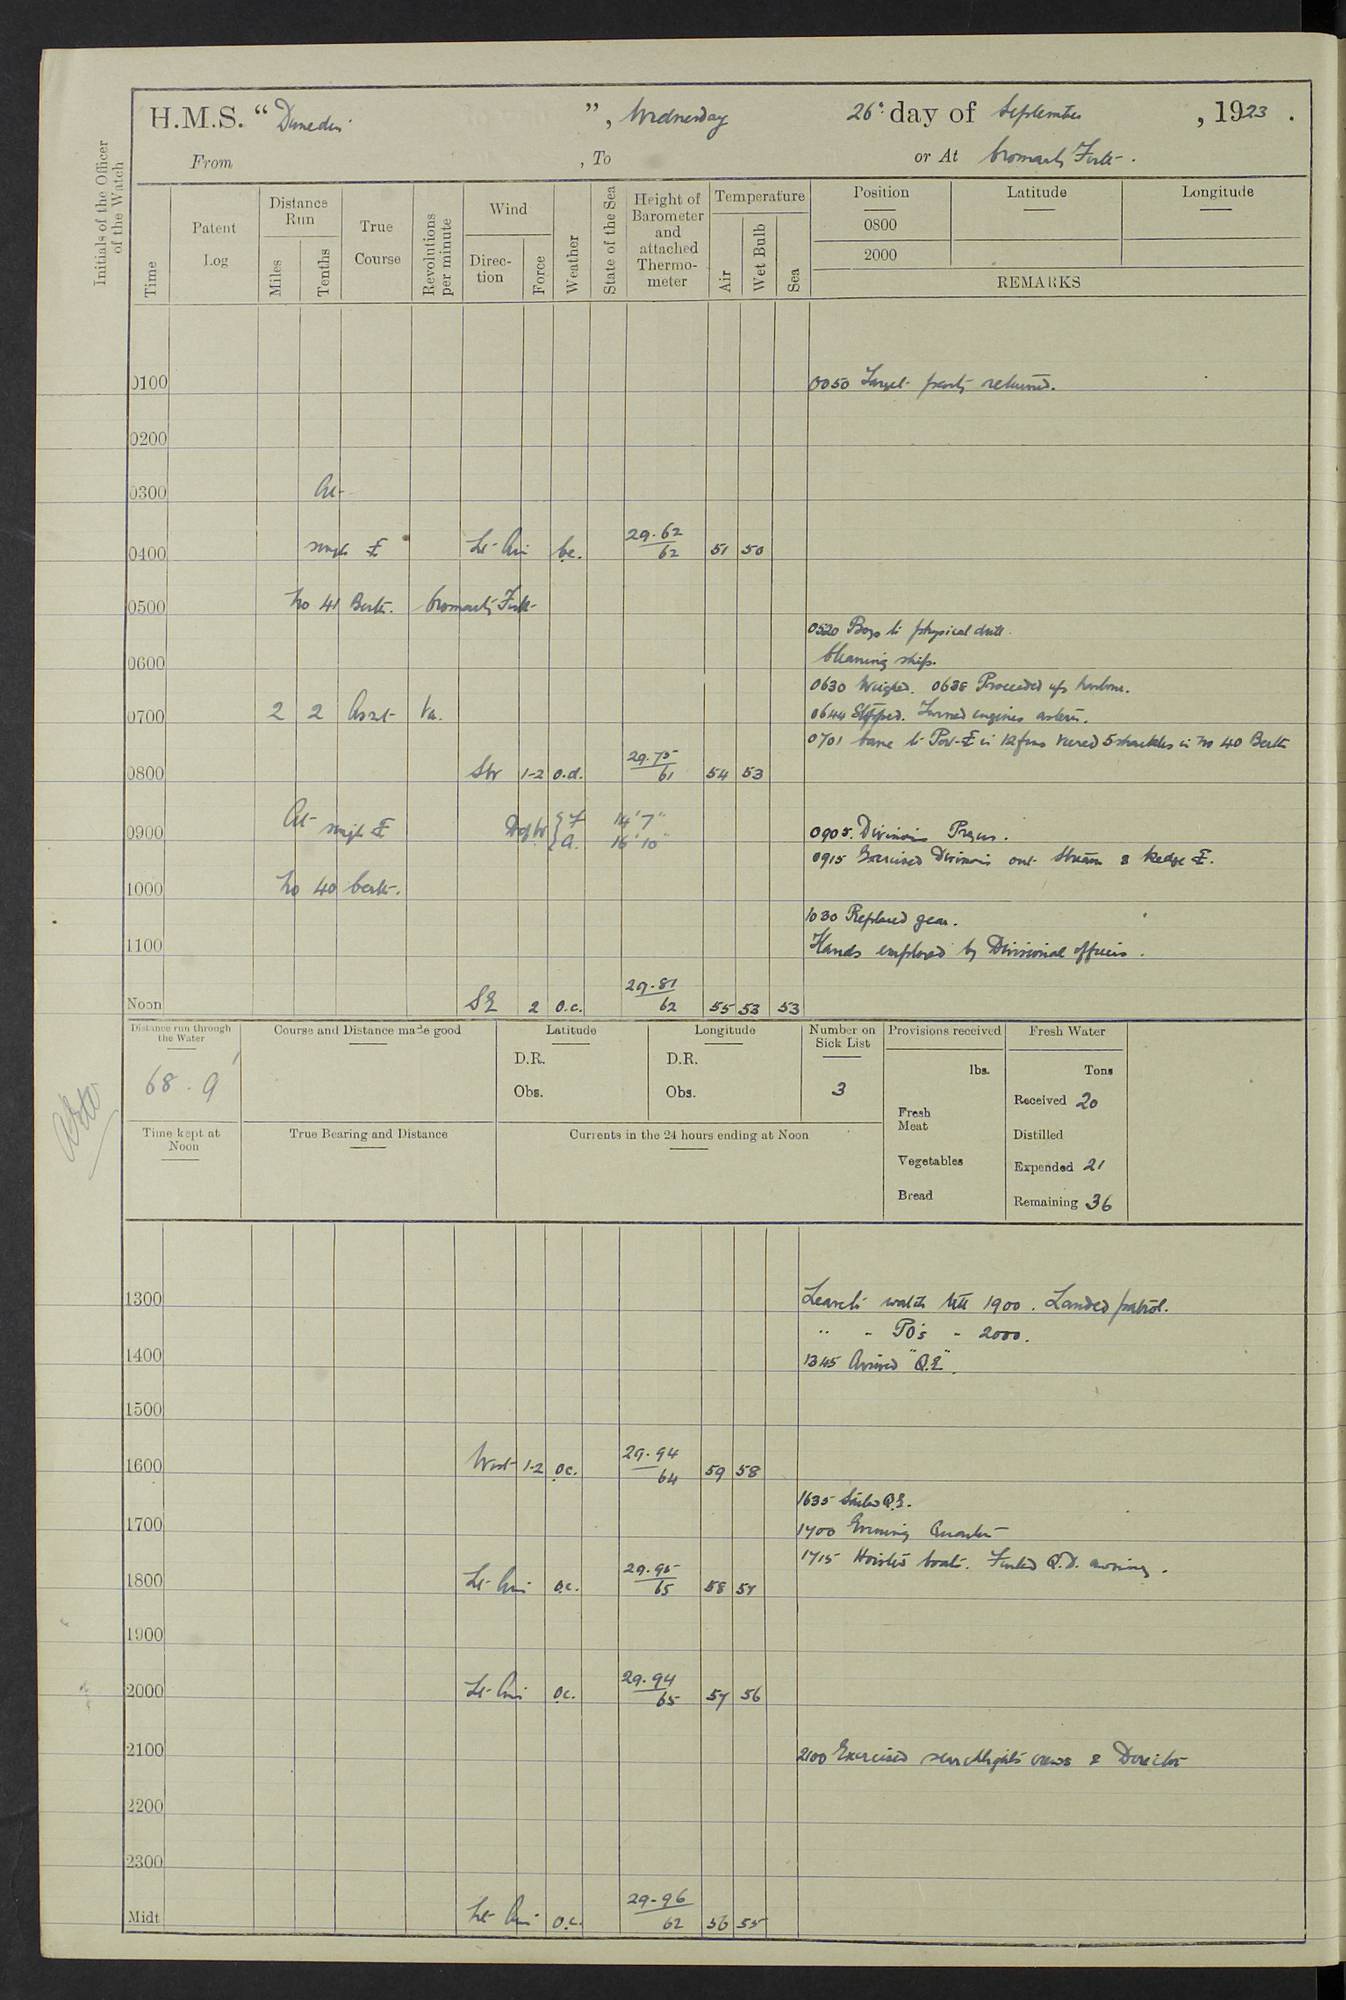 H.M.S. "Dunedin", Wednesday 26th day of September, 1923.
From , To or At Cromarty Firth.
Initials of the Officer of the Watch
Time
Patent Log
Distance Run
Miles
Tenths
True Course
Revolutions per minute
Wind
Direction
Force
Weather
State of the Sea
Height of Barometer and attached Thermometer
Temperature
Air
Wet Bulb
Sea
Position Latitude Longitude
0800
2000
REMARKS
0100 0050 Target party returned.
0200
0300 At
0400 single ⚓ Lt Air bc. 29.62 / 62 51 50
0500 No 41 Berth. Cromarty Firth
0520 Boys to physical drill.
0600 Cleaning ship.
0630 Weighed. 0638 Proceeded up harbour.
0700 2 2 Asst Va. 0644 Stopped. Turned engines astern.
0701 Came to Port ⚓ in 12 fms veered 5 shackles in No 40 Berth
0800 SW 1-2 o.d. 29.75 / 61 54 53
At single ⚓ F 14' 7"
0900 A. 16' 10" 0905. Divisions Prayers.
0915 Exercised Divisions out Stream & Kedge ⚓.
1000 No 40 berth.
1030 Replaced gear.
1100 Hands employed by Divisional officers.
Noon SE 2 o.c. 29.81 / 62 55 53 53
Distance run through the Water
68.9'
Course and Distance made good
Latitude
D.R.
Obs.
Longitude
D.R.
Obs.
Number on Sick List
3
Provisions received
lbs.
Fresh Meat
Vegetables
Bread
Fresh Water
Tons
Received 20
Distilled
Expended 21
Remaining 36
Time kept at Noon
True Bearing and Distance
Currents in the 24 hours ending at Noon
1300 Leave to watch till 1900. Landed patrol.
" - PO's - 2000.
1400 1345 Arrived "Q.E".
1500
1600 West 1-2 oc. 29.94 / 64 59 58
1635 Sailed Q.E.
1700 1700 Evening Quarters
1715 Hoisted boats. Furled Q.D. awning.
1800 Lt Air o.c. 29.95 / 65 58 57
1900
2000 Lt Air oc. 29.94 / 65 57 56
2100 2100 Exercised searchlights crews & Director
2200
2300
Midt Lt Air o.c. 29.96 / 62 56 55